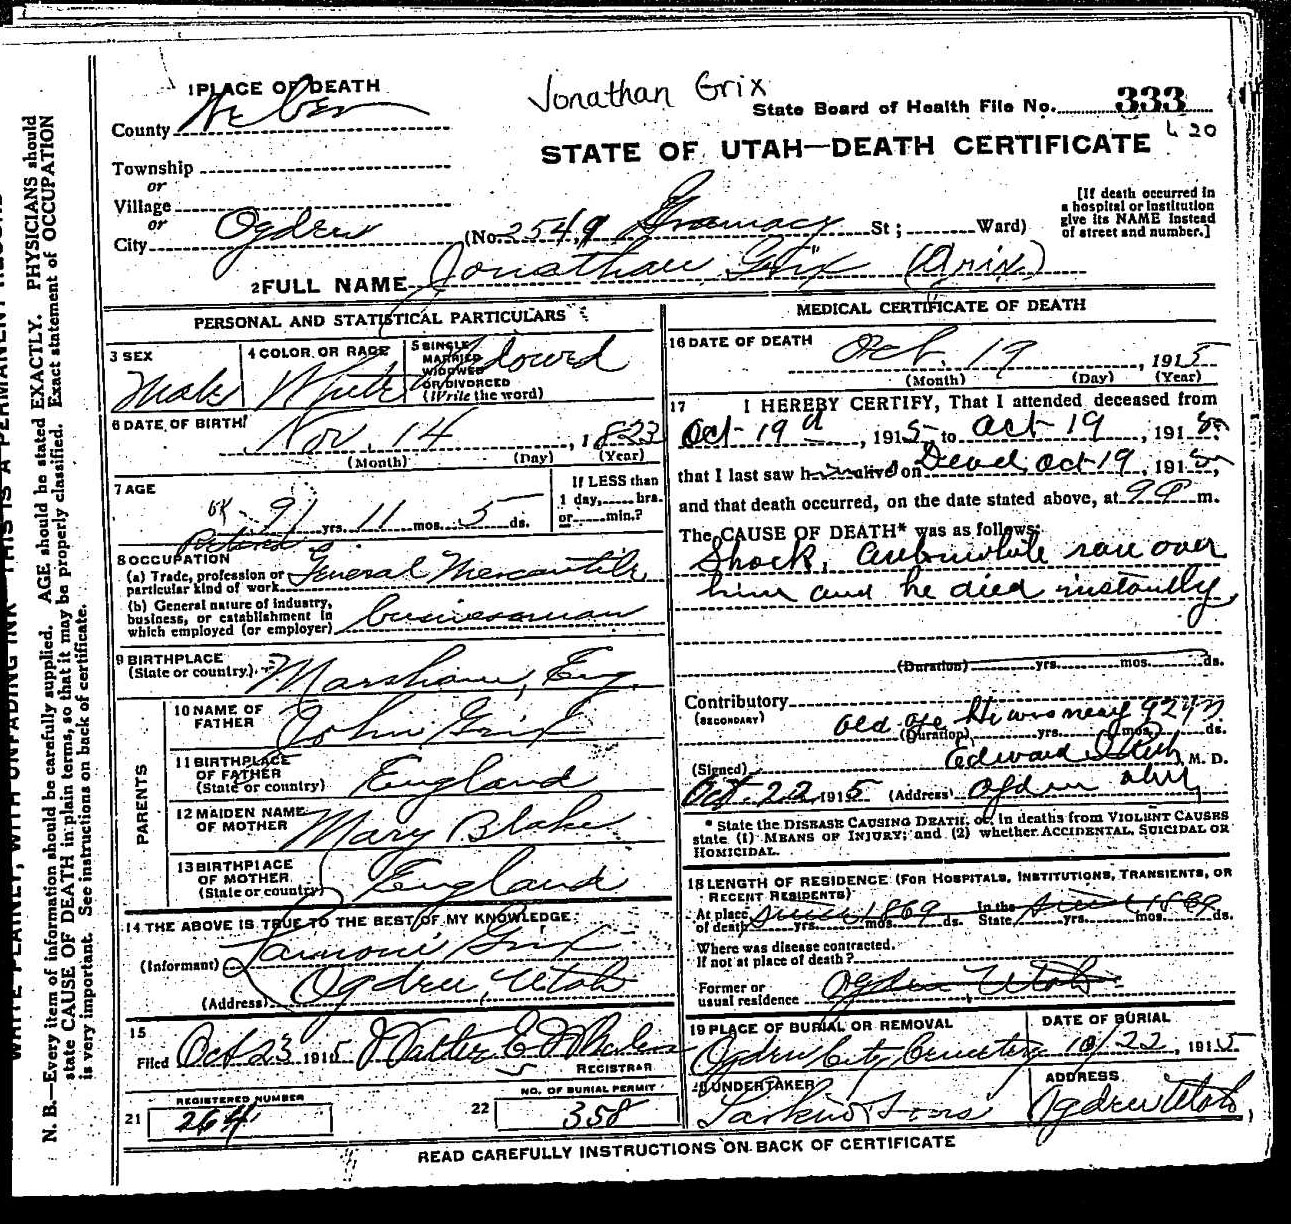 Jonathan Grix
1 PLACE OF DEATH
State Board of Health File No. 333
County Weber
420
STATE OF UTAH—DEATH CERTIFICATE
Township
or
Village
or
City Ogden (No. 2549 Gramacy St ; Ward)
[If death occurred in
a hospital or institution
give its NAME instead
of street and number.]
2 FULL NAME Jonathan Grix (Grix)
PERSONAL AND STATISTICAL PARTICULARS
3 SEX
Male
4 COLOR OR RACE
White
5 SINGLE
MARRIED
WIDOWED
OR DIVORCED
(Write the word)
Widowed
6 DATE OF BIRTH
Nov. 14, 1823
(Month) (Day) (Year)
7 AGE
91 yrs. 11 mos. 5 ds.
If LESS than
1 day, hrs.
or min.?
8 OCCUPATION Retired
(a) Trade, profession or
particular kind of work General Mercantile
(b) General nature of industry,
business, or establishment in
which employed (or employer) businessman
9 BIRTHPLACE
(State or country) Marsham, Eng.
PARENTS
10 NAME OF
FATHER John Grix
11 BIRTHPLACE
OF FATHER
(State or country) England
12 MAIDEN NAME
OF MOTHER Mary Blake
13 BIRTHPLACE
OF MOTHER
(State or country) England
14 THE ABOVE IS TRUE TO THE BEST OF MY KNOWLEDGE
(Informant) Lamoni Grix
(Address) Ogden, Utah
15
Filed Oct 23 1915 Walter E Whalen
REGISTRAR
REGISTERED NUMBER
21 264
NO. OF BURIAL PERMIT
22 358
MEDICAL CERTIFICATE OF DEATH
16 DATE OF DEATH
Oct. 19, 1915
(Month) (Day) (Year)
17 I HEREBY CERTIFY, That I attended deceased from
Oct 19, 1915, to Oct 19, 1915
that I last saw him alive on Dead Oct 19, 1915,
and that death occurred, on the date stated above, at 9 P m.
The CAUSE OF DEATH* was as follows:
Shock, Automobile ran over
him and he died instantly
(Duration) yrs. mos. ds.
Contributory
(SECONDARY) old age He was near 92 yrs
(Duration) yrs. mos. ds.
(Signed) Edward I Rich, M. D.
Oct. 22 1915 (Address) Ogden Utah
* State the DISEASE CAUSING DEATH, or, in deaths from VIOLENT CAUSES
state (1) MEANS OF INJURY; and (2) whether ACCIDENTAL, SUICIDAL OR
HOMICIDAL.
18 LENGTH OF RESIDENCE (FOR HOSPITALS, INSTITUTIONS, TRANSIENTS, OR
RECENT RESIDENTS)
At place
of death since 1869 yrs. mos. ds. In the
State since 1869 yrs. mos. ds.
Where was disease contracted.
If not at place of death?
Former or
usual residence Ogden Utah
19 PLACE OF BURIAL OR REMOVAL
Ogden City Cemetery
DATE OF BURIAL
10/22, 1915
20 UNDERTAKER
Larkin & Sons
ADDRESS
Ogden Utah
READ CAREFULLY INSTRUCTIONS ON BACK OF CERTIFICATE
N. B.—Every item of information should be carefully supplied. AGE should be stated EXACTLY. PHYSICIANS should
state CAUSE OF DEATH in plain terms, so that it may be properly classified. Exact statement of OCCUPATION
is very important. See instructions on back of certificate.
WRITE PLAINLY, WITH UNFADING INK—THIS IS A PERMANENT RECORD